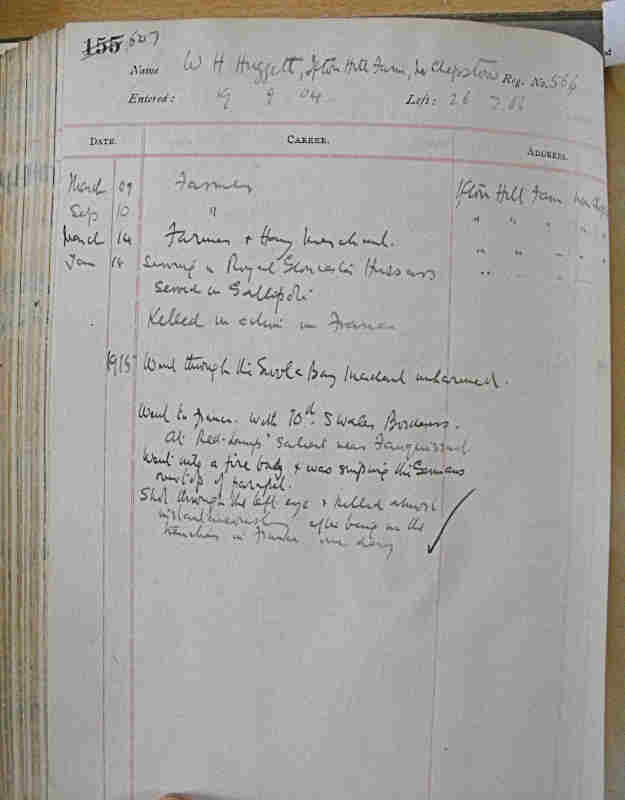 155 607
Name W H Huggett, Ifton Hill Farm, Nr Chepstow Reg. No. 566
Entered: 19 9 04 Left: 26 7 06
DATE. CAREER. ADDRESS.
March 09 Farmer Ifton Hill Farm
Sep 10 " " " "
March 14 Farmer & Hay Merchant. " "
Jan Serving in Royal Gloucester Hussars
Served in Gallipoli
Killed in action in France
1915 Went through the Suvla Bay unharmed.
Went to France with 10th S Wales Borderers.
At Red Lamp Salient near Fauquissart
Went into a fire bay & was sniping the Germans
over top of parapet.
Shot through the left eye & killed almost
instantaneously after being in the
trenches in France one day